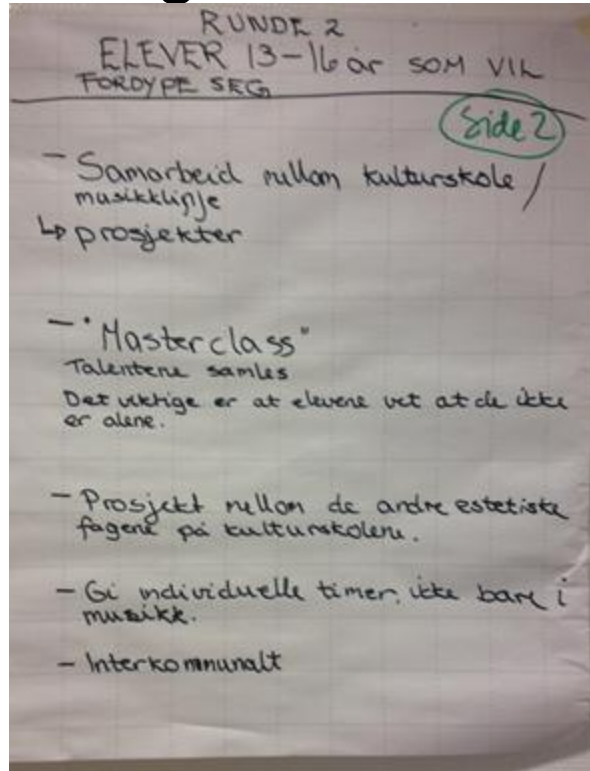 RUNDE 2
ELEVER 13-16 år SOM VIL
FORDYPE SEG
Side 2
- Samarbeid mellom kulturskole /
musikklinje
↳ prosjekter
- "Masterclass"
Talentene samles
Det viktige er at elevene vet at de ikke
er alene.
- Prosjekt mellom de andre estetiske
fagene på kulturskolene.
- Gi individuelle timer, ikke bare i
musikk.
- Interkommunalt